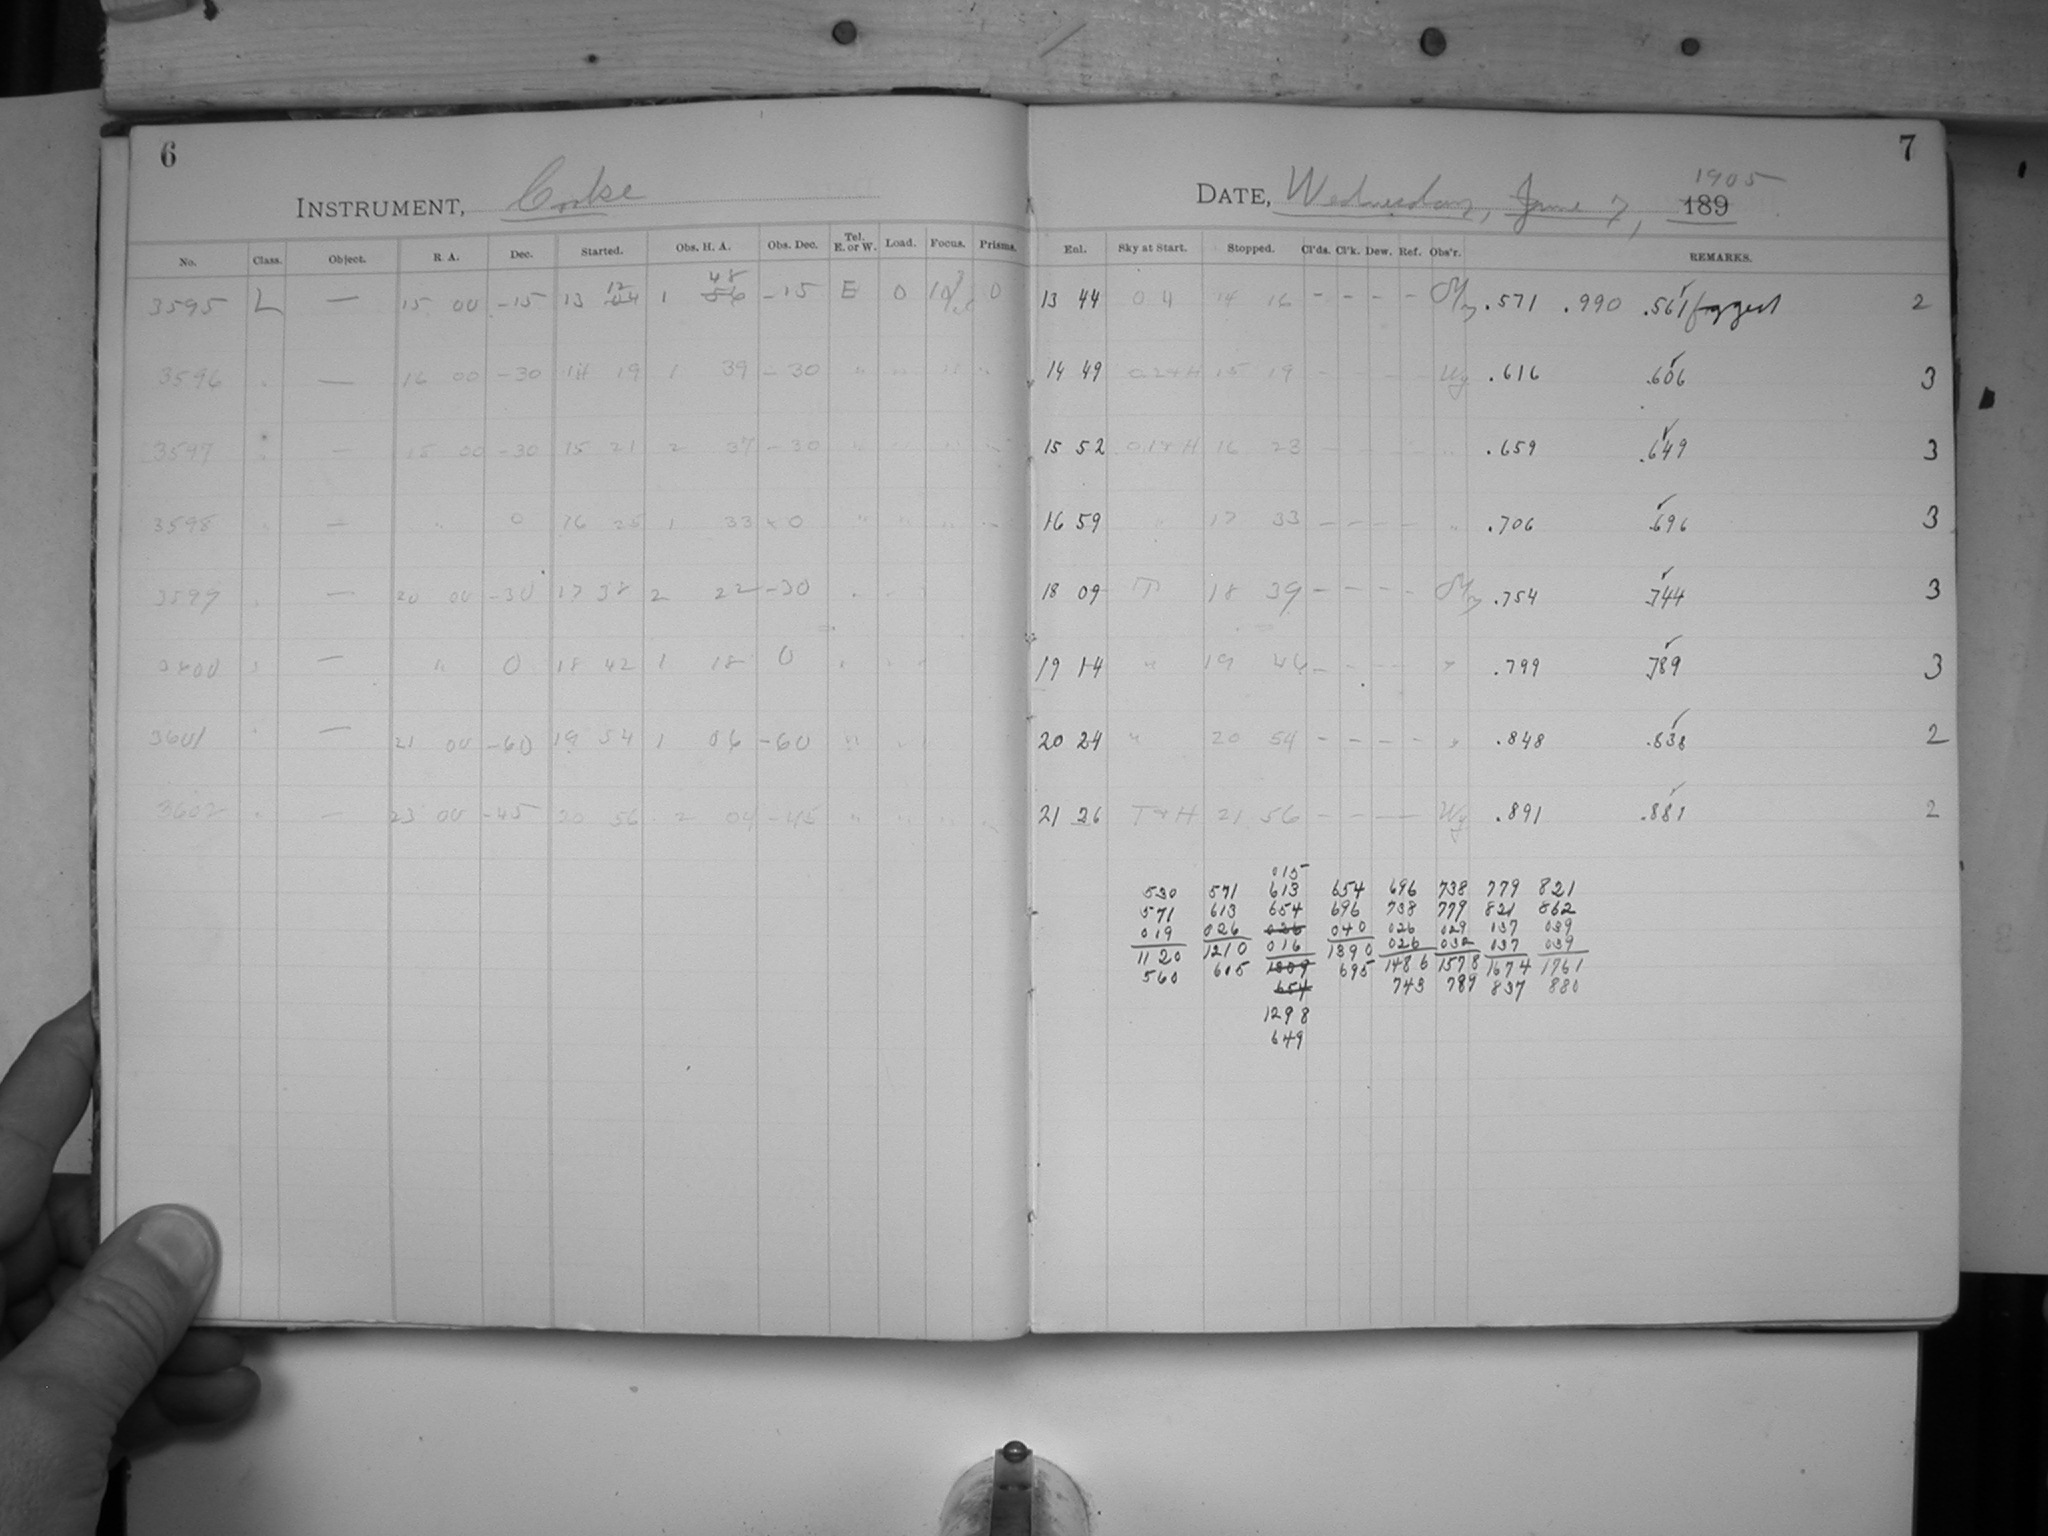 6
INSTRUMENT, Cooke
No. Class. Object. R. A. Dec. Started. Obs. H. A. Obs. Dec. Tel. E. or W. Load. Focus. Prisms.
3595 L — 15 00 -15 13 12 1 48 -15 E 0 0
3596 — 16 00 -30 14 19 1 39 -30 " " " "
3597 — 15 00 -30 15 21 2 37 -30 " " " "
3598 — " 0 16 25 1 33 0 " " " "
3599 — 20 00 -30 17 38 2 22 -30 " " "
— " 0 18 42 1 18 0 " " "
3601 — 21 00 -60 19 54 1 06 -60 " " "
3602 — 23 00 -45 20 56 2 04 -45 " " " "
7
DATE, Wednesday, June 7, 189 1905
Enl. Sky at Start. Stopped. Cl'ds. Cl'k. Dew. Ref. Obs'r. REMARKS.
13 44 04 14 16 - - - - .571 .990 .561 fogged 2
14 49 15 19 - - - - .616 .606 3
15 52 16 23 - - - " .659 .649 3
16 59 " 17 33 - - - - " .706 .696 3
18 09 T 18 39 - - - - .754 .744 3
19 14 " 19 46 - - - - " .799 .789 3
20 24 " 20 54 - - - - " .848 .838 2
21 26 T & H 21 56 - - - .891 .881 2
015
530 571 613 654 696 738 779 821
571 613 654 696 738 779 821 862
019 026 026 040 026 029 037 039
1120 1210 016 1390 026 032 037 039
560 605 1309 695 1486 1578 1674 1761
654 743 789 837 880
1298
649